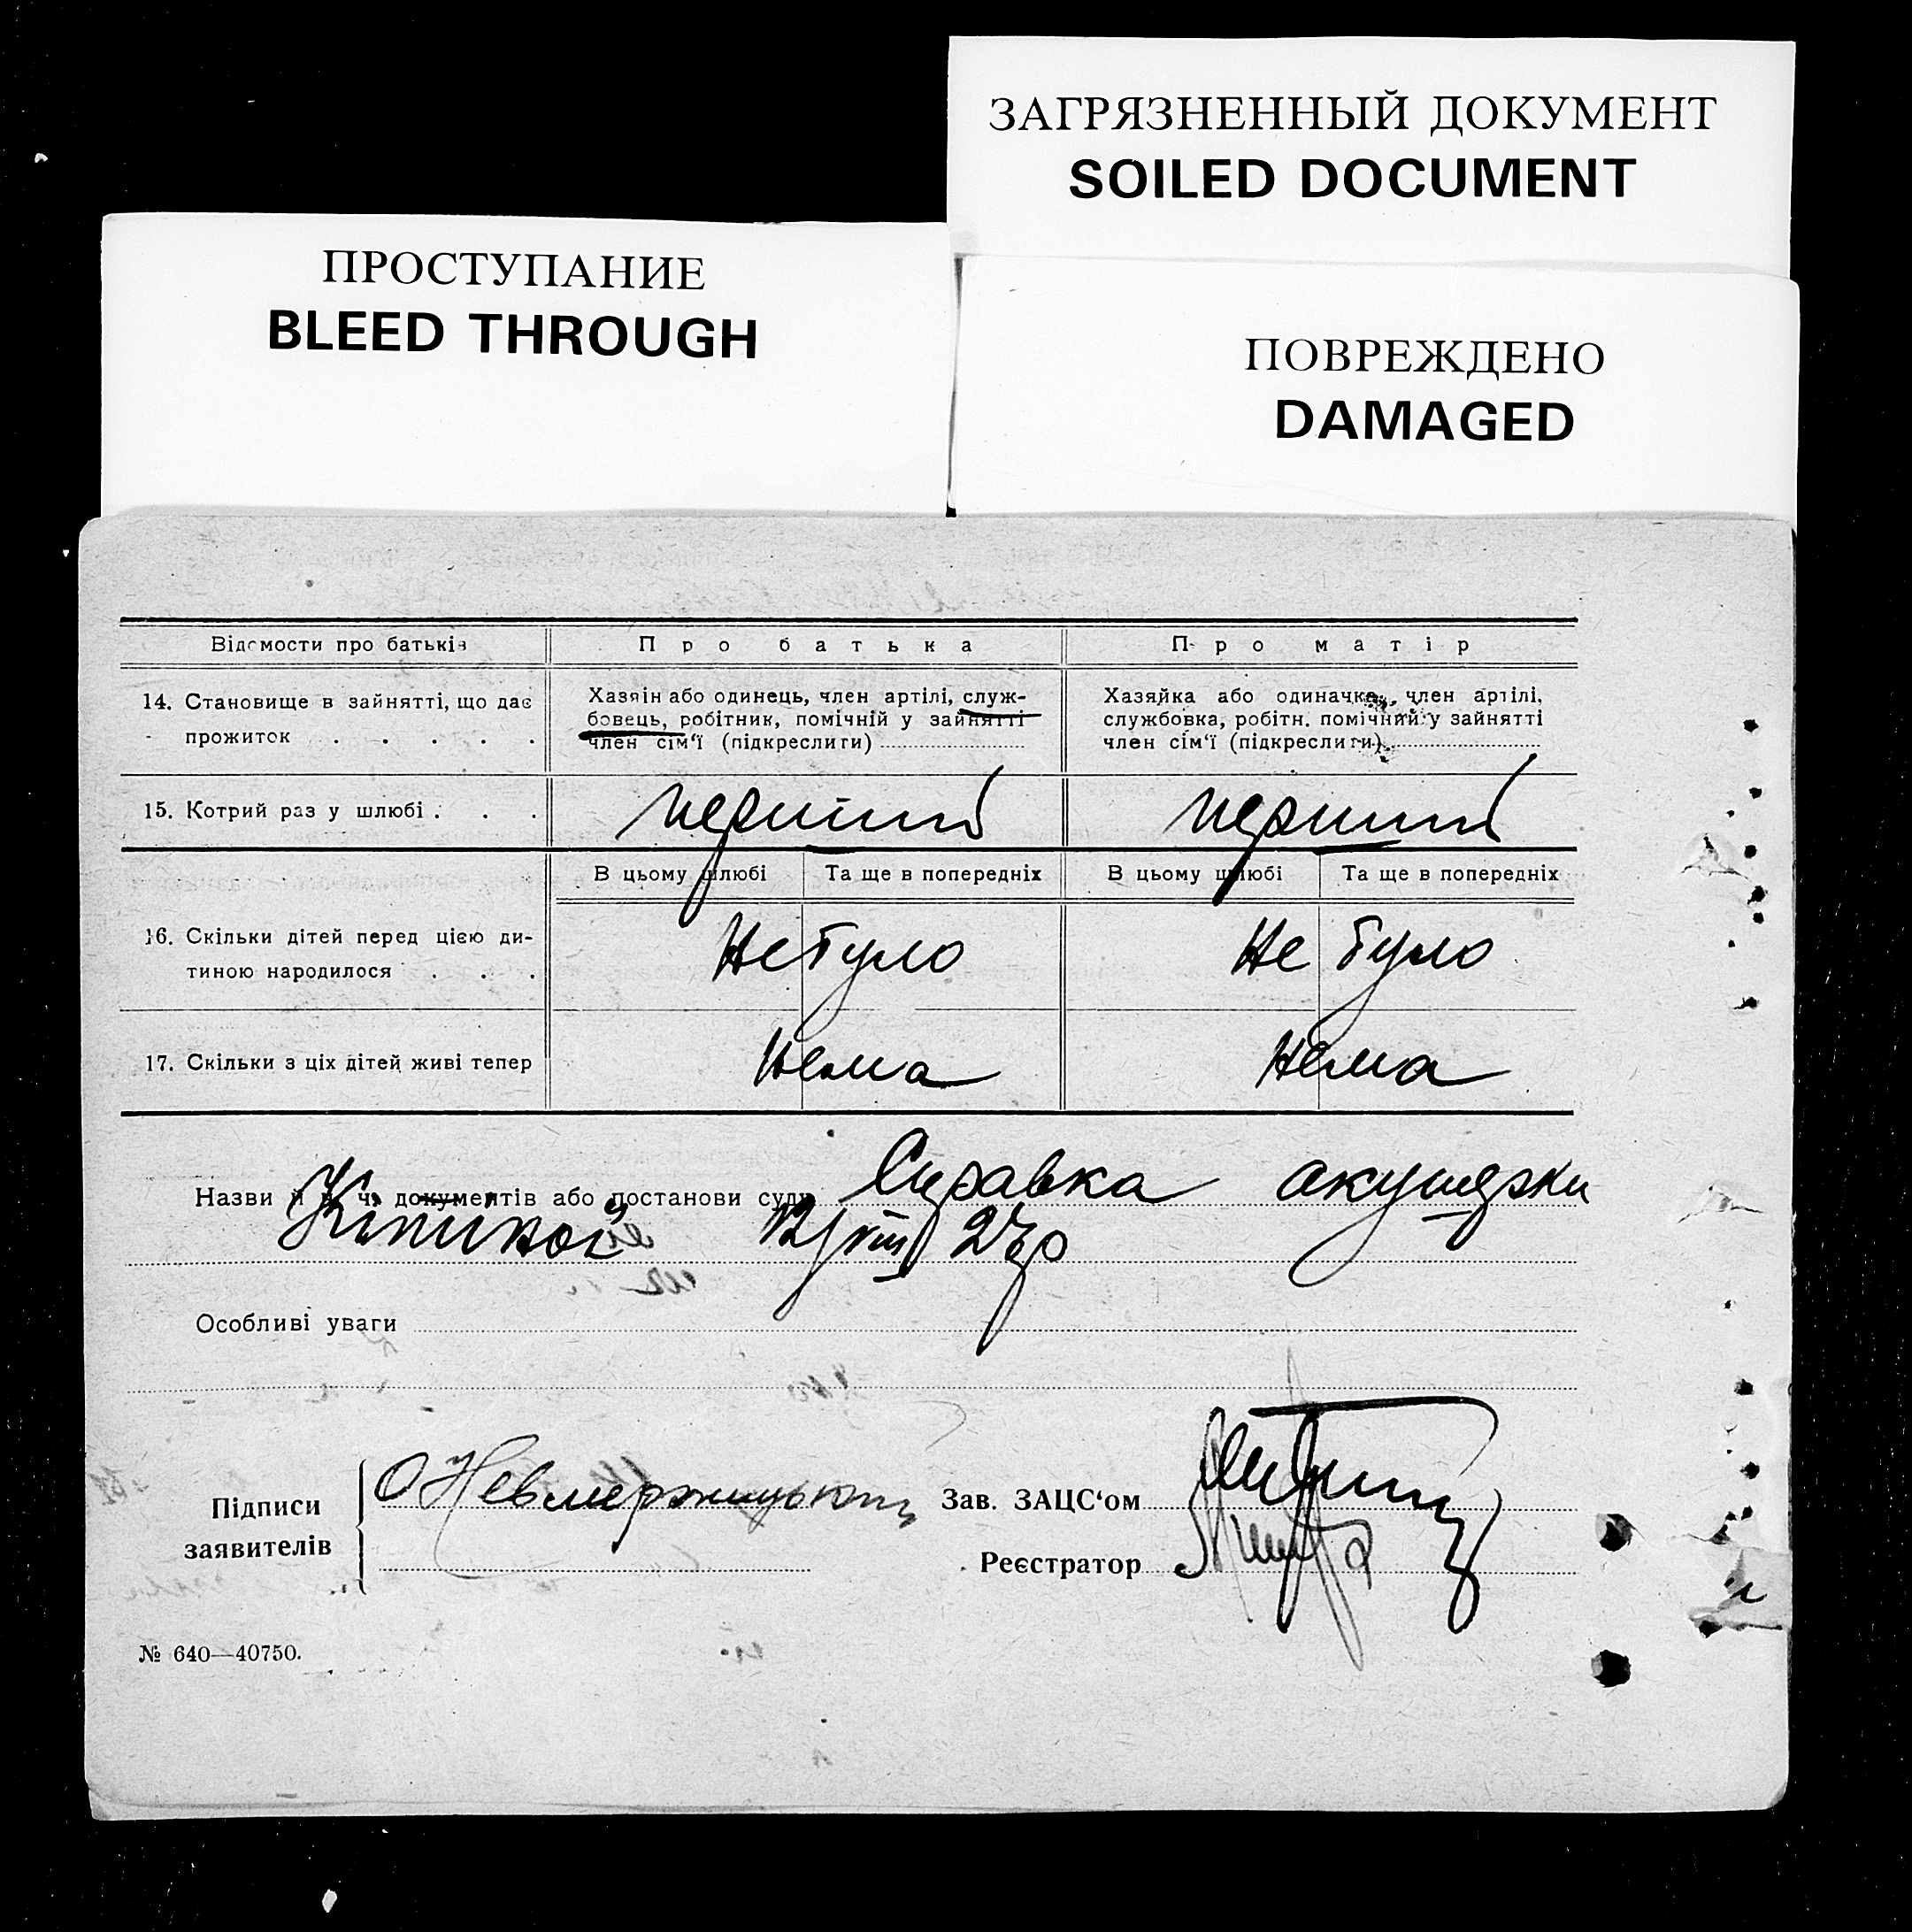 ЗАГРЯЗНЕННЫЙ ДОКУМЕНТ
SOILED DOCUMENT
ПРОСТУПАНИЕ
BLEED THROUGH
ПОВРЕЖДЕНО
DAMAGED
Відомости про батьків
Про батька
Про матір
14. Становище в зайнятті, що дає
прожиток . . . . .
Хазяін або одинець, член артілі, служ-
бовець, робітник, помічній у зайнятті
член сім‘ї (підкреслити)
Хазяйка або одиначка, член артілі,
службовка, робітн. помічний у зайнятті
член сім‘ї (підкреслити)
15. Котрий раз у шлюбі . . .
перший
перший
В цьому шлюбі
Та ще в попередніх
В цьому шлюбі
Та ще в попередніх
16. Скільки дітей перед цією ди-
тиною народилося . . .
Не було
Не було
17. Скільки з ціх дітей живі тепер
Нема
Нема
Назви й ч. ч. документів або постанови суду Справка акушерки
12/VIII 27р
Особливі уваги
Підписи
заявителів
Зав. ЗАЦС‘ом
Реєстратор
№ 640—40750.